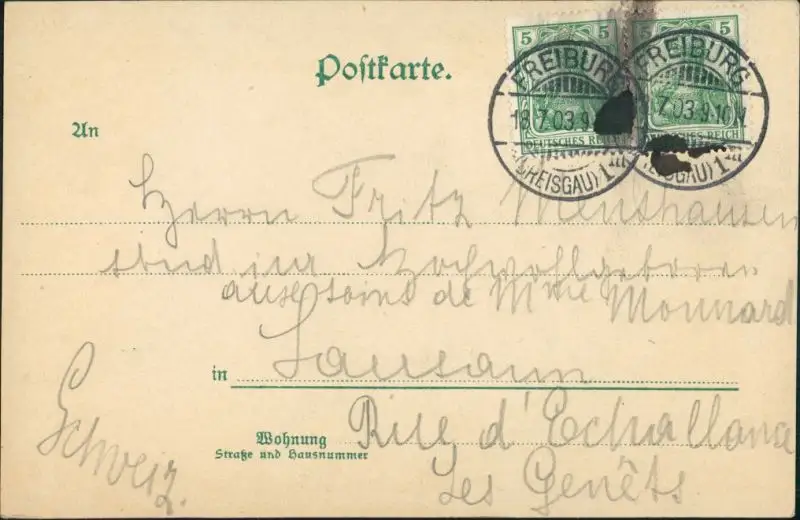 5 5 5 5
Postkarte.
FREIBURG FREIBURG
18.7.03.9 7.03.9-10V.
DEUTSCHES REICH DEUTSCHES REICH
(BREISGAU) 1 (BREISGAU) 1
An
Herrn Fritz Menshausen
stud jur Hochwohlgeboren
aux soins de Mme Monnard
in Lausann
Schweiz.
Wohnung Rue d'Echallens
Straße und Hausnummer
Les Genêts